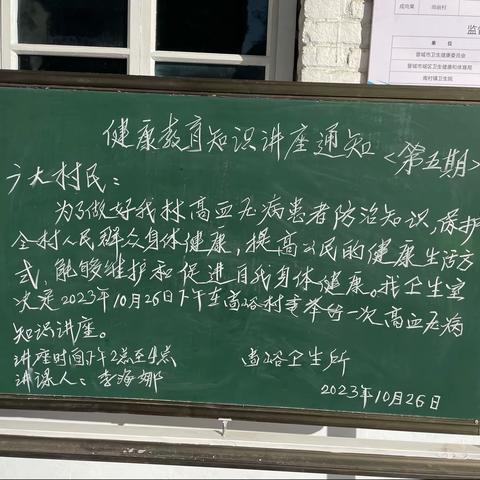 成向果
监督
单位
晋城市卫生健康委员会
晋城市城区卫生健康和体育局
南村镇卫生院
健康教育知识讲座通知<第五期>
广大村民：
为了做好我村高血压病患者防治知识，保护
全村人民群众身体健康，提高公民的健康生活方
式，能够维护和促进自我身体健康。我卫生室
决定2023年10月26日下午在 村委举行一次高血压病
知识讲座。
讲座时间下午2点至4点
卫生所
讲课人：李海娜
2023年10月26日